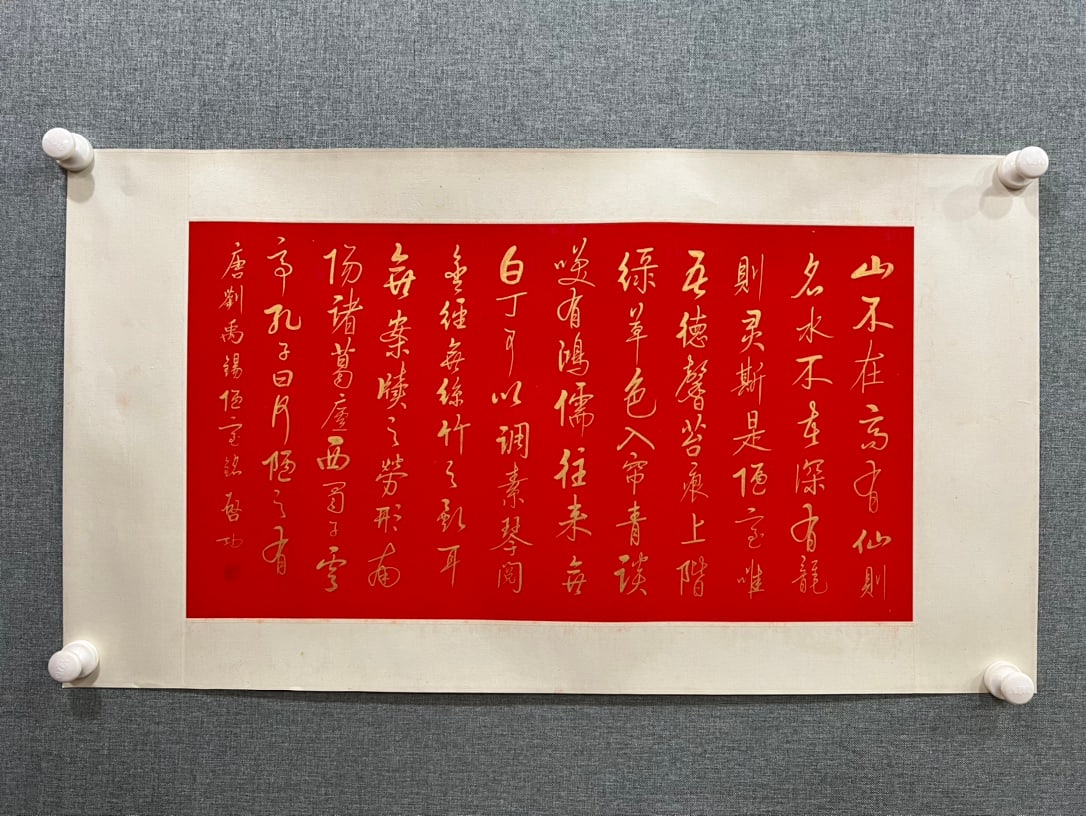 山不在高有仙則
名水不在深有龍
則灵斯是陋室唯
吾德馨苔痕上階
綠草色入帘青談
笑有鴻儒往来無
白丁可以调素琴閱
金經無絲竹之亂耳
無案牍之勞形南
陽諸葛廬西蜀子雲
亭孔子曰何陋之有
唐劉禹錫陋室銘啓功